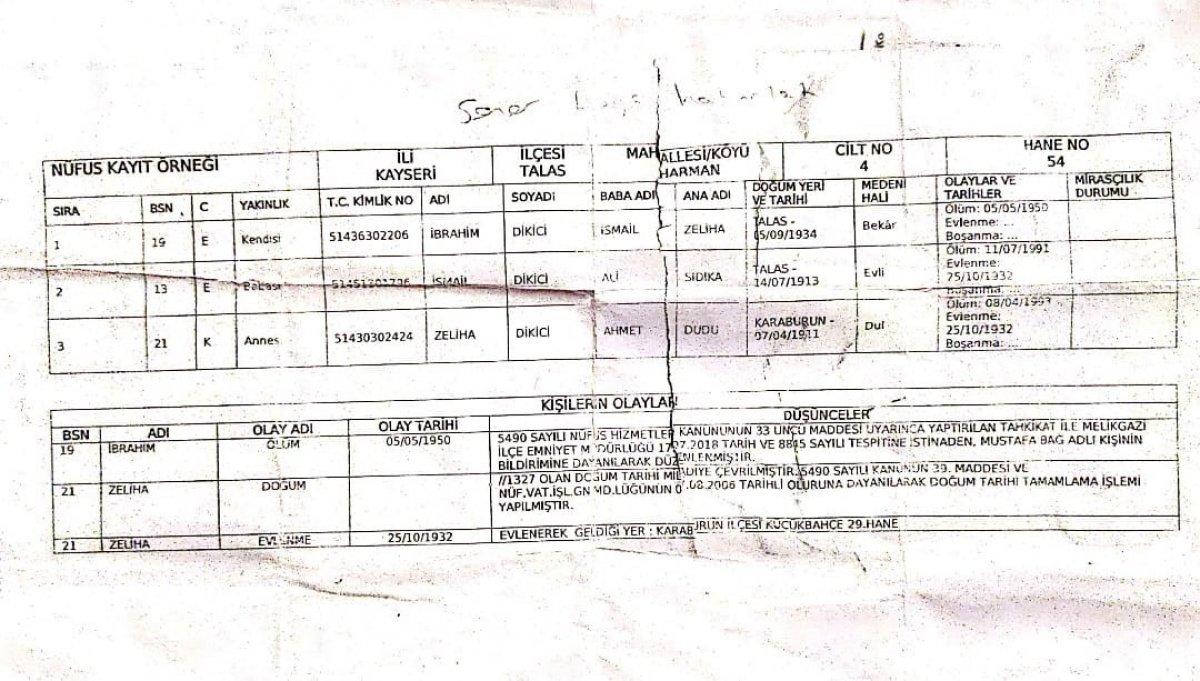 Soner
NÜFUS KAYIT ÖRNEĞİ İLİ KAYSERİ İLÇESİ TALAS MAHALLESİ/KÖYÜ HARMAN CİLT NO 4 HANE NO 54
SIRA BSN C YAKINLIK T.C. KİMLİK NO ADI SOYADI BABA ADI ANA ADI DOĞUM YERİ VE TARİHİ MEDENİ HALİ OLAYLAR VE TARİHLER MİRASÇILIK DURUMU
1 19 E Kendisi 51436302206 İBRAHİM DİKİCİ İSMAİL ZELİHA TALAS - 05/09/1934 Bekâr Ölüm: 05/05/1950 Evlenme: ... Boşanma: ...
2 13 E Babası İSMAİL DİKİCİ ALİ SIDIKA TALAS - 14/07/1913 Evli Ölüm: 11/07/1991 Evlenme: 25/10/1932 Boşanma: ...
3 21 K Annes 51430302424 ZELİHA DİKİCİ AHMET DUDU KARABURUN - 07/04/1911 Dul Ölüm: 08/04/1993 Evlenme: 25/10/1932 Boşanma: ...
KİŞİLERİN OLAYLARI
BSN ADI OLAY ADI OLAY TARİHİ DÜŞÜNCELER
19 İBRAHİM ÖLÜM 05/05/1950 5490 SAYILI NÜFUS HİZMETLER KANUNUNUN 33 ÜNCÜ MADDESİ UYARINCA YAPTIRILAN TAHKİKAT İLE MELİKGAZİ
İLÇE EMNİYET MÜDÜRLÜĞÜ 17.07.2018 TARİH VE 8845 SAYILI TESPİTİNE İSTİNADEN, MUSTAFA BAĞ ADLI KİŞİNİN
BİLDİRİMİNE DAYANILARAK DÜZENLENMİŞTİR.
21 ZELİHA DOĞUM //1327 OLAN DOĞUM TARİHİ MİLADİYE ÇEVRİLMİŞTİR. 5490 SAYILI KANUNUN 39. MADDESİ VE
NÜF.VAT.İŞL.GN MD.LÜĞÜNÜN .08.2006 TARİHLİ OLURUNA DAYANILARAK DOĞUM TARİHİ TAMAMLAMA İŞLEMİ
YAPILMIŞTIR.
21 ZELİHA EVLENME 25/10/1932 EVLENEREK GELDİĞİ YER : KARABURUN İLÇESİ KÜÇÜKBAHÇE 29.HANE